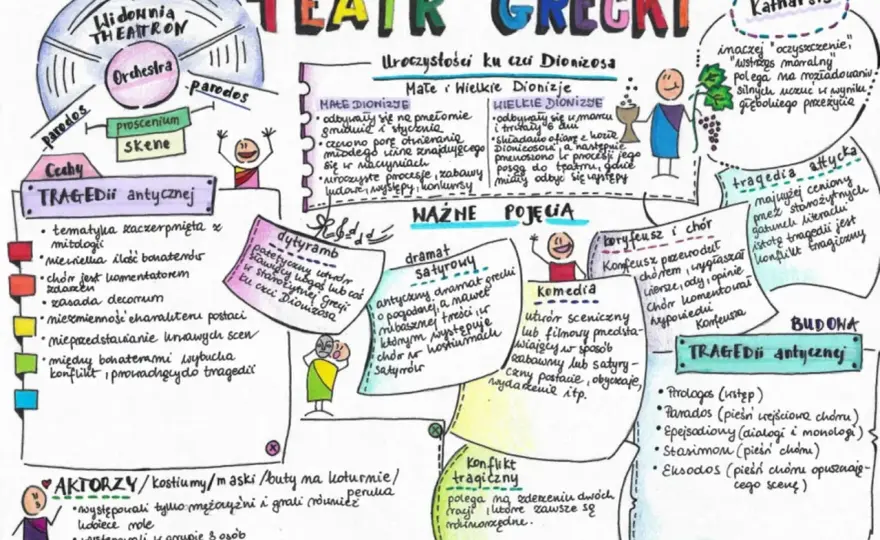 TEATR GRECKI
Widownia
THEATRON
Orchestra
parodos
parodos
proscenium
skene
Uroczystości ku czci Dionizosa
Małe i Wielkie Dionizje
MAŁE DIONIZJE
• odbywały się na przełomie
grudnia i stycznia
• czczono porę otwierania
młodego wina znajdującego
się w naczyniach
• uroczyste procesje, zabawy
ludowe, występy, konkursy
WIELKIE DIONIZJE
• odbywały się w marcu
i trwały 6 dni
• składano ofiarę z kozła
Dionizosowi, a następnie
przenoszono w procesji jego
posąg do teatru, gdzie
miały odbyć się występy
Katharsis
inaczej "oczyszczenie",
"wstrząs moralny"
polega na rozładowaniu
silnych uczuć w wyniku
głębokiego przeżycia
Cechy
TRAGEDii antycznej
• tematyka zaczerpnięta z
mitologii
• niewielka ilość bohaterów
• chór jest komentatorem
zdarzeń
• zasada decorum
• niezmienność charakteru postaci
• nieprzedstawianie krwawych scen
• między bohaterami wybucha
konflikt, prowadzący do tragedii
WAŻNE POJĘCIA
dytyramb
patetyczny utwór
sławiący kogoś lub coś
w starożytnej Grecji
ku czci Dionizosa
dramat
satyrowy
antyczny dramat grecki
o pogodnej, a nawet
rubasznej treści, w
którym występuje
chór w kostiumach
satyrów
komedia
utwór sceniczny
lub filmowy przedsta-
wiający w sposób
zabawny lub satyry-
czny postacie, obyczaje,
wydarzenia itp.
koryfeusz i chór
Koryfeusz przewodził
chórem, wygłaszał
wiersze, ody, opinie
Chór komentował
wypowiedzi
Koryfeusza
tragedia attycka
najwyżej ceniony
przez starożytnych
gatunek literacki
istotą tragedii jest
konflikt tragiczny
konflikt
tragiczny
polega na zderzeniu dwóch
racji, które zawsze są
równorzędne.
BUDOWA
TRAGEDii antycznej
• Prologos (wstęp)
• Parados (pieśń wejściowa chóru)
• Epejsodiony (dialogi i monologi)
• Stasimon (pieśń chóru)
• Eksodos (pieśń chóru opuszczają-
cego scenę)
AKTORZY / kostiumy / maski / buty na koturnie /
peruka
• występowali tylko mężczyźni i grali również
kobiece role
• występowali w grupie 3 osób